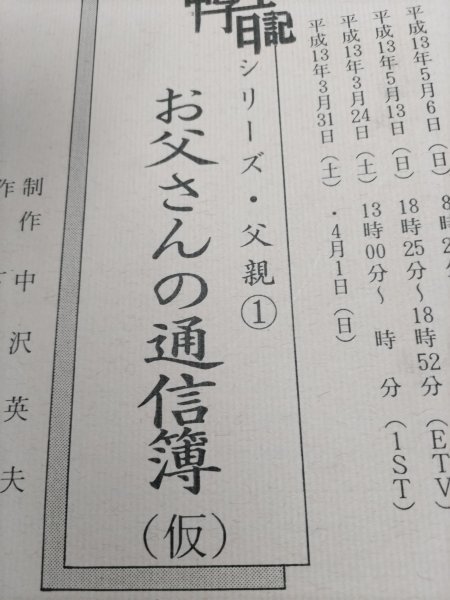 平成13年5月6日（日）
平成13年5月13日（日） 18時25分～18時52分（ETV）
平成13年3月24日（土） 13時00分～ 時 分（1ST）
平成13年3月31日（土）・4月1日（日）
日記
シリーズ・父親①
お父さんの通信簿
（仮）
制作 中沢英夫
作